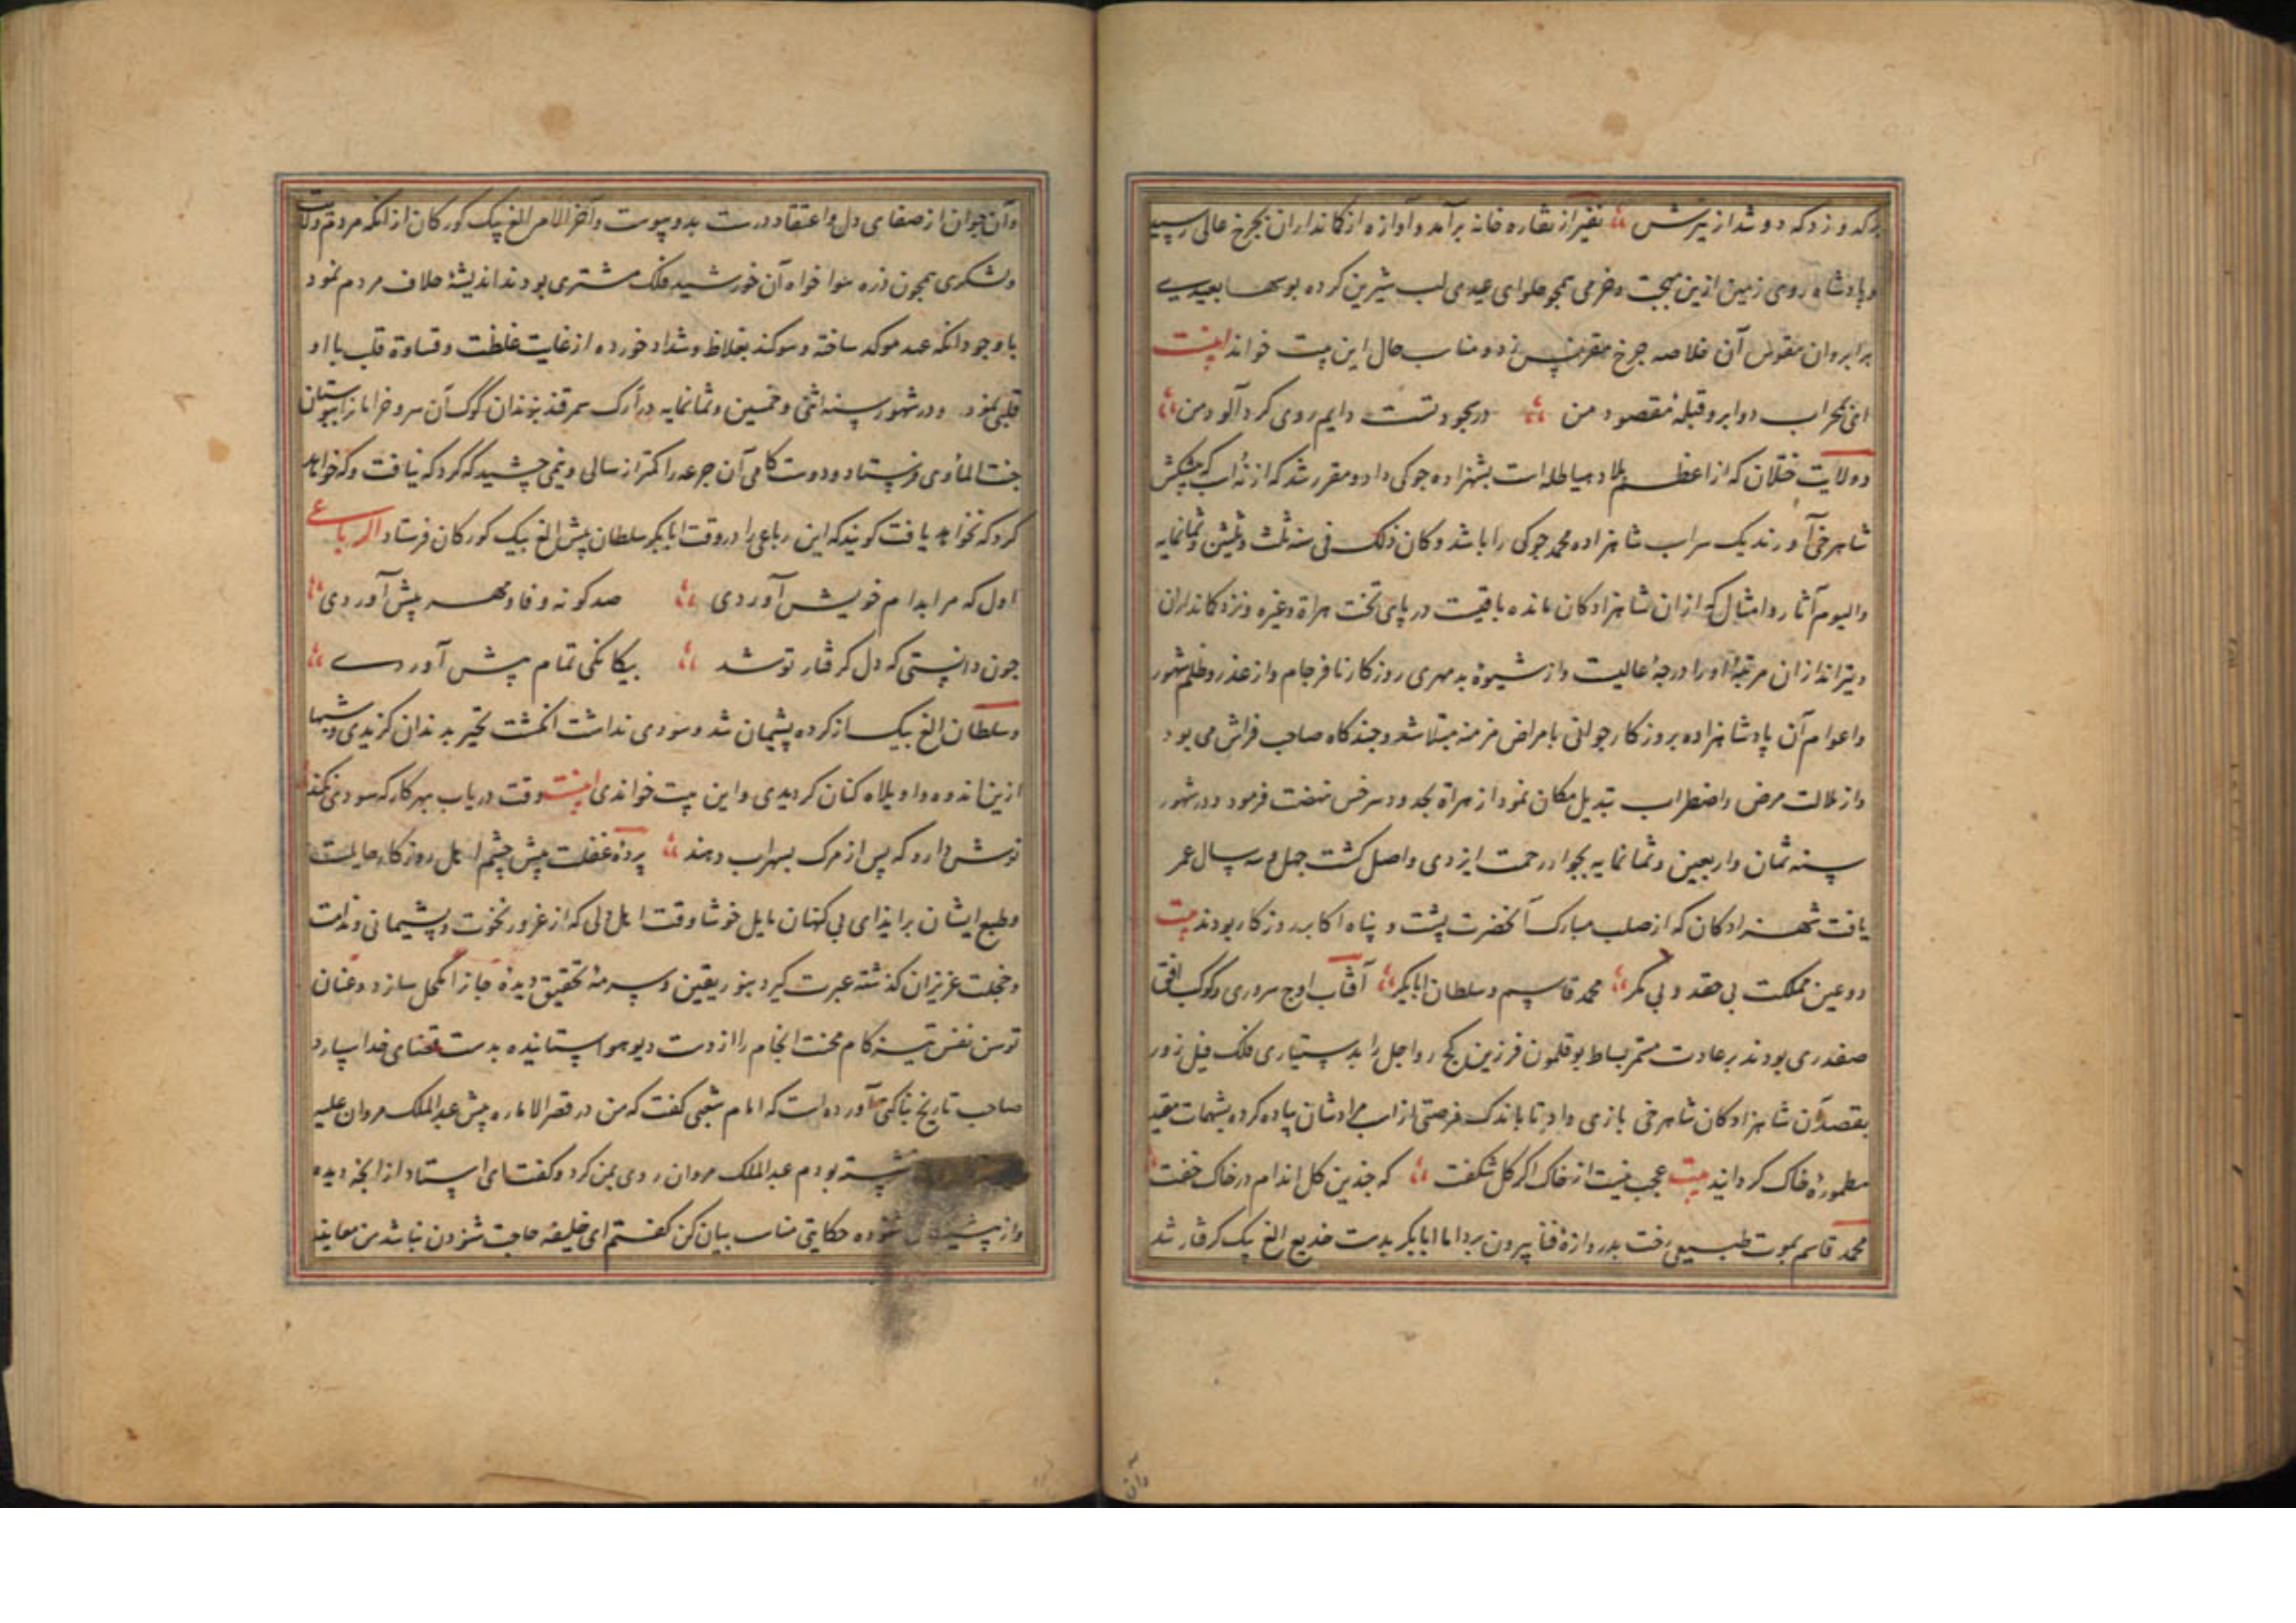 بر کدو زد که دو شد از تیرش نفیر از نقاره خانه برآمد و آوازه از کمانداران بچرخ عالی رسید
و پادشاه روی زمین ازین بهجت و خرمی همچو حلوای عیدی لب شیرین کرده بوسها بعیدی
بر ابروان مقوس آن خلاصه چرخ مقرنس زد و مناسب حال این بیت خواند بیت
ای محراب دو ابرو قبلهٔ مقصود من در سجودتست دایم روی کرد آلود من
و ولایت ختلان که از اعظم بلاد هیاطله است بشهزاده جوکی داد و مقرر شد که از نه اسب که پیشکش
شاهرخی آورند یک سر اسب شاهزاده محمد جوکی را باشد و کان ذلک فی سنه ثلث و ثلثین و ثمانمایه
والیوم آثار و امثال که ازان شاهزادکان مانده باقیست در پای تخت هراة و غیره و نزد کمانداران
و تیراندازان مرتبهٔ او را درجهٔ عالیست و از شیوهٔ بد مهری روزکار نافرجام و از غدر و ظلم شهور
و اعوام آن پادشاهزاده بروزکار جوانی بامراض مزمنه مبتلا شد و چندکاه صاحب فراش می بود
و از ملالت مرض و اضطراب تبدیل مکان نمود از هراة بحدود سرخس نهضت فرمود و در شهور
سنه ثمان و اربعین و ثمانمایه بجوار رحمت ایزدی واصل کشت چهل و سه سال عمر
یافت شهزادکان که از صلب مبارک آنحضرت پشت و پناه اکابر روزکار بودند بیت
دو عین مملکت بی حقد و بی مکر محمد قاسم و سلطان ابابکر آفتاب اوج سروری و کوکب افق
صفدری بودند بر عادت مستمر بساط بوقلمون فرزین کج رو اجل را بدستیاری فلک فیل زور
بقصد آن شاهزادکان شاهرخی بازی داد تا باندک فرصتی از اسب مرادشان پیاده کرده بشهمات مقید
مطمورهٔ خاک کردانید بیت عجب نیست از خاک اکر کل شکفت که چندین کل اندام در خاک خفت
محمد قاسم بموت طبیعی رخت بدروازهٔ فنا بیرون برد اما ابابکر بدست خدیع الغ بیک کرفتار شد
وآن جوان از صفای دل و اعتقاد درست بدو پیوست و آخر الامر الغ بیک کورکان از آنکه مردم ولایت
و لشکری همچون ذره هوا خواه آن خورشید فلک مشتری بودند اندیشهٔ خلاف مردم نمود
با وجود آنکه عهد موکد ساخته و سوکند بغلاظ و شداد خورده از غایت غلظت و قساوة قلب با او
قلبی نمود و در شهور سنه اثنی و خمسین و ثمانمایه در ارک سمرقند بزندان کوک آن سرو خرامان را ببوستان
جنت المأوی فرستاد و دوستکامی آن جرعه را کمتر از سالی و نیمی چشید که کرد که نیافت و که خواهد
کرد که نخواهد یافت کویند که این رباعی را در وقت ابابکر سلطان پیش الغ بیک کورکان فرستاد الرباعی
اول که مرا بدام خویش آوردی صد کونه وفا و مهر پیش آوردی
چون دانستی که دل کرفتار تو شد بیکانکی تمام پیش آوردی
و سلطان الغ بیک از کرده پشیمان شد و سودی نداشت انکشت تحیر بدندان کزیدی و شبها
ازین اندوه واویلاه کنان کردیدی و این بیت خواندی بیت وقت دریاب بهر کار که سودی نکند
نوش دارو که پس از مرک بسهراب دهند پردهٔ غفلت پیش چشم اهل روزکار حایلست
و طبع ایشان بر ایذای بی کنهان مایل خوشا وقت اهل دلی که از غرور نخوت و پشیمانی و ندامت
و خجلت عزیزان کذشته عبرت کیرد بنور یقین و سرمهٔ تحقیق دیدهٔ مجاز را مکحل سازد و عنان
توسن نفس تیز کام محنت انجام را از دست دیو هوا ستانیده بدست قضای خدا سپارد
صاحب تاریخ بناکتی آورده است که امام شعبی کفت که من در قصر الاماره پیش عبدالملک مروان علیه
نشسته بودم عبدالملک مروان روی بمن کرد و کفت ای استاد از آنچه دیده
و از پیشینیان شنوده حکایتی مناسب بیان کن کفتم ای خلیفه حاجت شنودن نباشد من معاینه